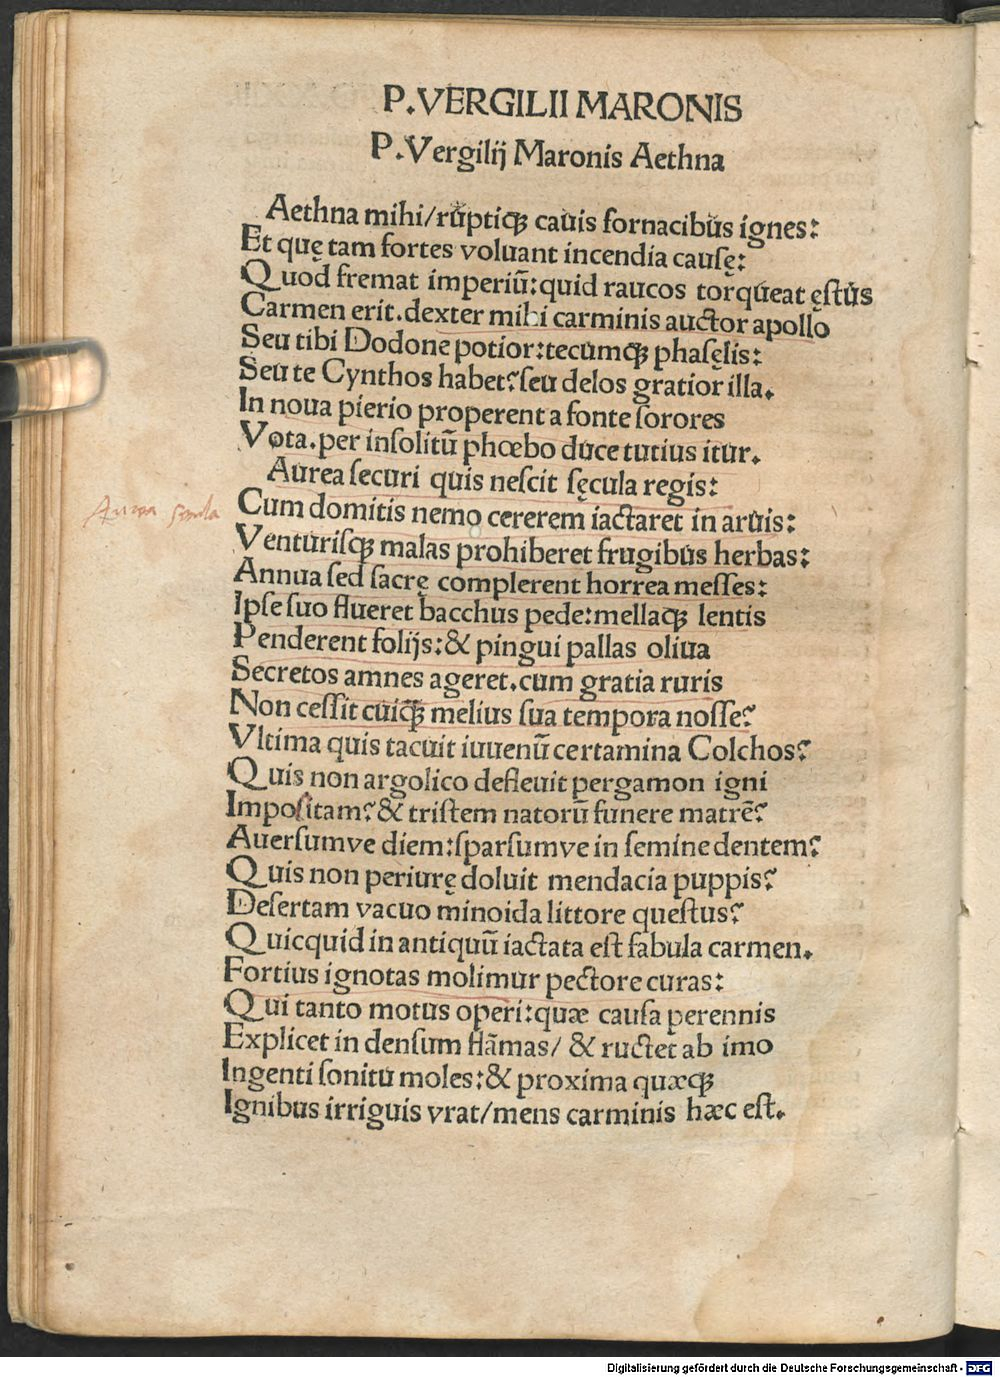 P.VERGILII MARONIS
P.Vergilij Maronis Aethna
Aethna mihi/ruptiqꝫ cauis fornacibus ignes:
Et quę tam fortes voluant incendia causę:
Quod fremat imperiū:quid raucos torqueat ęstus
Carmen erit.dexter mihi carminis auctor apollo
Seu tibi Dodone potior:tecumqꝫ phasęlis:
Seu te Cynthos habet?seu delos gratior illa.
In noua pierio properent a fonte sorores
Vota.per insolitū phœbo duce tutius itur.
Aurea securi quis nescit sęcula regis:
Aurea secula
Cum domitis nemo cererem iactaret in aruis:
Venturisqꝫ malas prohiberet frugibus herbas:
Annua sed sacrę complerent horrea messes:
Ipse suo flueret bacchus pede:mellaqꝫ lentis
Penderent folijs:& pingui pallas oliua
Secretos amnes ageret.cum gratia ruris
Non cessit cuiqꝫ melius sua tempora nosse?
Vltima quis tacuit iuuenū certamina Colchos?
Quis non argolico defleuit pergamon igni
Impositam?& tristem natorū funere matrē?
Auersumve diem:sparsumve in semine dentem?
Quis non periurę doluit mendacia puppis?
Desertam vacuo minoida littore questus?
Quicquid in antiquū iactata est fabula carmen.
Fortius ignotas molimur pectore curas:
Qui tanto motus operi:quæ causa perennis
Explicet in densum flāmas/ & ructet ab imo
Ingenti sonitu moles:& proxima quæqꝫ
Ignibus irriguis vrat/mens carminis hæc est.
Digitalisierung gefördert durch die Deutsche Forschungsgemeinschaft - DFG